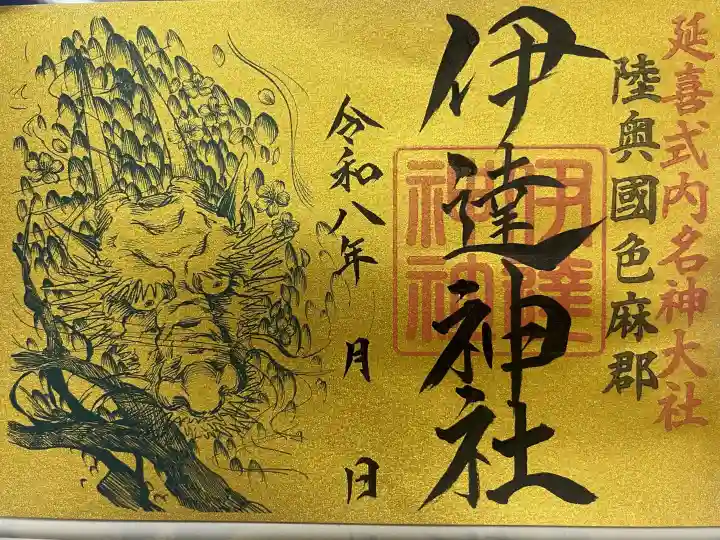 延喜式内名神大社
陸奥國色麻郡
伊達神社
伊達
神社
令和八年 月 日